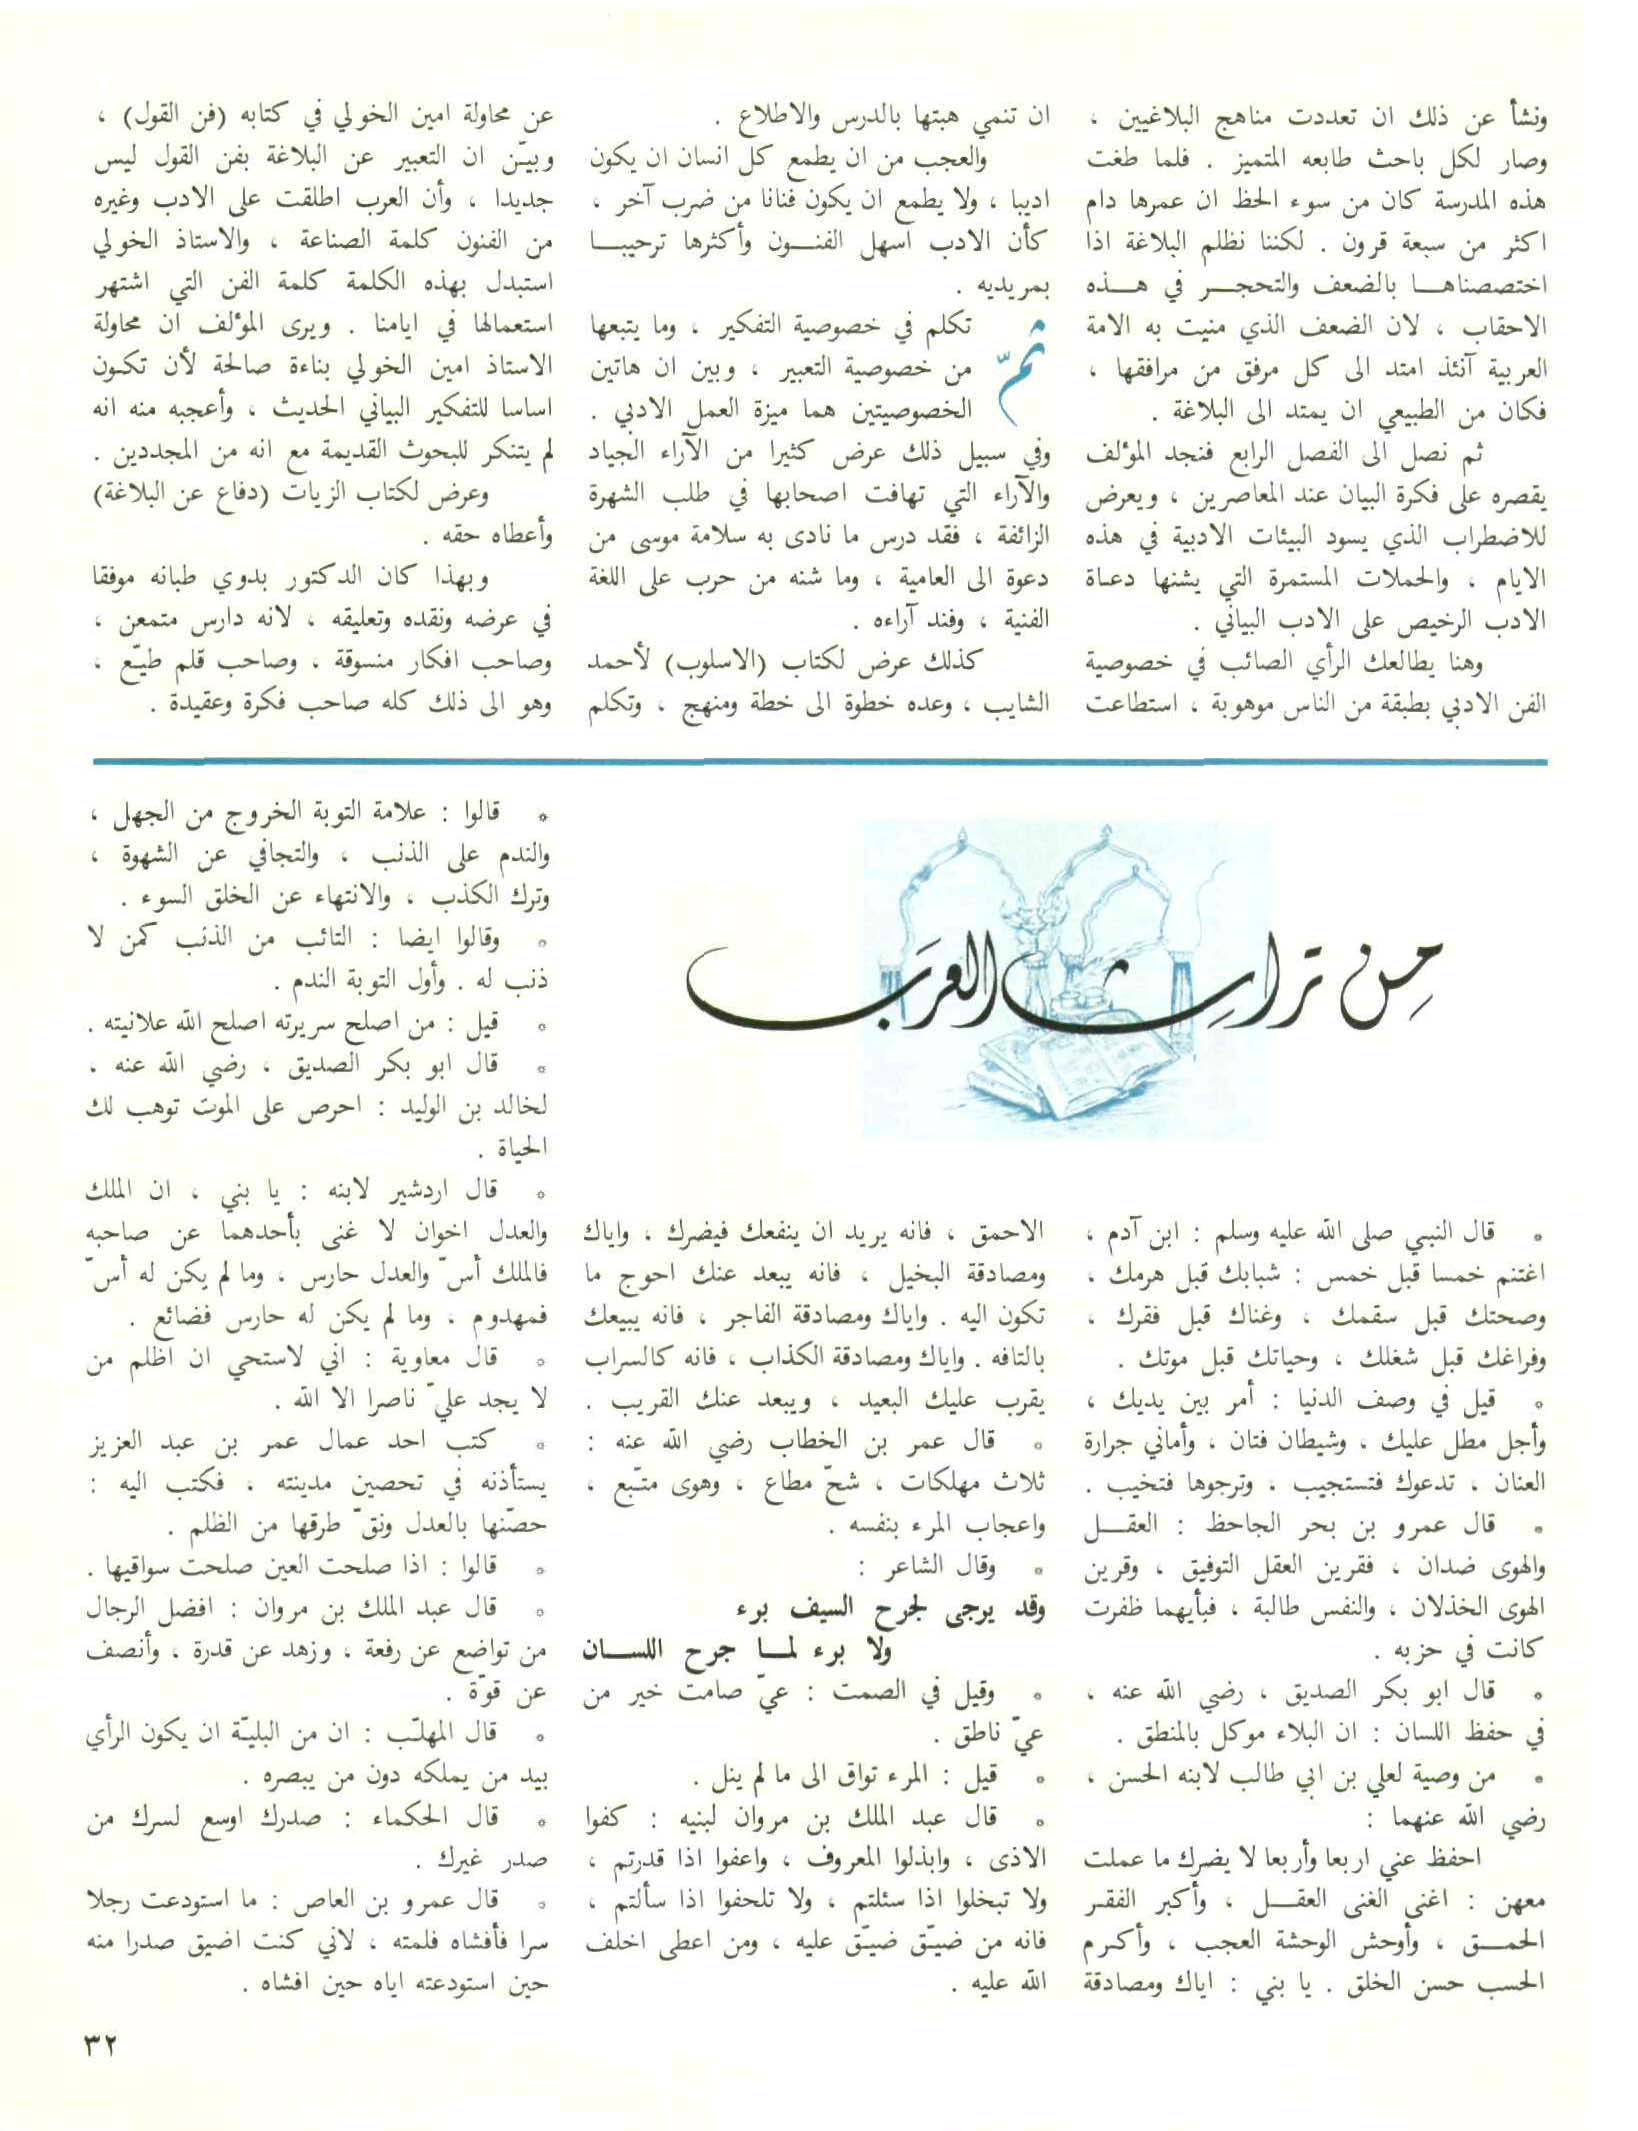 ونشأ عن ذلك ان تعددت مناهج البلاغيين ،
وصار لكل باحث طابعه المتميز . فلما طغت
هذه المدرسة كان من سوء الحظ ان عمرها دام
اكثر من سبعة قرون . لكننا نظلم البلاغة اذا
اختصصناهـا بالضعف والتحجـر في هـذه
الاحقاب ، لان الضعف الذي منيت به الامة
العربية آنئذ امتد الى كل مرفق من مرافقها ،
فكان من الطبيعي ان يمتد الى البلاغة .
ثم نصل الى الفصل الرابع فنجد المؤلف
يقصره على فكرة البيان عند المعاصرين ، ويعرض
للاضطراب الذي يسود البيئات الادبية في هذه
الايام ، والحملات المستمرة التي يشنها دعاة
الادب الرخيص على الادب البياني .
وهنا يطالعك الرأي الصائب في خصوصية
الفن الادبي بطبقة من الناس موهوبة ، استطاعت
ان تنمي هبتها بالدرس والاطلاع .
والعجب من ان يطمع كل انسان ان يكون
اديبا ، ولا يطمع ان يكون فنانا من ضرب آخر ،
كأن الادب اسهل الفنـون وأكثرها ترحيبـا
بمريديه .
ثمّ تكلم في خصوصية التفكير ، وما يتبعها
من خصوصية التعبير ، وبين ان هاتين
الخصوصيتين هما ميزة العمل الادبي .
وفي سبيل ذلك عرض كثيرا من الآراء الجياد
والآراء التي تهافت اصحابها في طلب الشهرة
الزائفة ، فقد درس ما نادى به سلامة موسى من
دعوة الى العامية ، وما شنه من حرب على اللغة
الفنية ، وفند آراءه .
كذلك عرض لكتاب (الاسلوب) لأحمد
الشايب ، وعده خطوة الى خطة ومنهج ، وتكلم
عن محاولة امين الخولي في كتابه (فن القول) ،
وبيّن ان التعبير عن البلاغة بفن القول ليس
جديدا ، وأن العرب اطلقت على الادب وغيره
من الفنون كلمة الصناعة ، والاستاذ الخولي
استبدل بهذه الكلمة كلمة الفن التي اشتهر
استعمالها في ايامنا . ويرى المؤلف ان محاولة
الاستاذ امين الخولي بناءة صالحة لأن تكون
اساسا للتفكير البياني الحديث ، وأعجبه منه انه
لم يتنكر للبحوث القديمة مع انه من المجددين .
وعرض لكتاب الزيات (دفاع عن البلاغة)
وأعطاه حقه .
وبهذا كان الدكتور بدوي طبانه موفقا
في عرضه ونقده وتعليقه ، لانه دارس متمعن ،
وصاحب افكار منسوقة ، وصاحب قلم طيّع ،
وهو الى ذلك كله صاحب فكرة وعقيدة .
مِن تراثِ العرَب
• قال النبي صلى الله عليه وسلم : ابن آدم ،
اغتنم خمسا قبل خمس : شبابك قبل هرمك ،
وصحتك قبل سقمك ، وغناك قبل فقرك ،
وفراغك قبل شغلك ، وحياتك قبل موتك .
• قيل في وصف الدنيا : أمر بين يديك ،
وأجل مطل عليك ، وشيطان فتان ، وأماني جرارة
العنان ، تدعوك فتستجيب ، وترجوها فتخيب .
• قال عمرو بن بحر الجاحظ : العقـل
والهوى ضدان ، فقرين العقل التوفيق ، وقرين
الهوى الخذلان ، والنفس طالبة ، فبأيهما ظفرت
كانت في حزبه .
• قال ابو بكر الصديق ، رضي الله عنه ،
في حفظ اللسان : ان البلاء موكل بالمنطق .
• من وصية لعلي بن ابي طالب لابنه الحسن ،
رضي الله عنهما :
احفظ عني اربعا وأربعا لا يضرك ما عملت
معهن : اغنى الغنى العقـل ، وأكبر الفقر
الحمـق ، وأوحش الوحشة العجب ، وأكرم
الحسب حسن الخلق . يا بني : اياك ومصادقة
الاحمق ، فانه يريد ان ينفعك فيضرك ، واياك
ومصادقة البخيل ، فانه يبعد عنك احوج ما
تكون اليه . واياك ومصادقة الفاجر ، فانه يبيعك
بالتافه . واياك ومصادقة الكذاب ، فانه كالسراب
يقرب عليك البعيد ، ويبعد عنك القريب .
• قال عمر بن الخطاب رضي الله عنه :
ثلاث مهلكات ، شحّ مطاع ، وهوى متّبع ،
واعجاب المرء بنفسه .
• وقال الشاعر :
وقد يرجى لجرح السيف برء
ولا برء لمـا جرح اللسـان
• وقيل في الصمت : عيّ صامت خير من
عيّ ناطق .
• قيل : المرء تواق الى ما لم ينل .
• قال عبد الملك بن مروان لبنيه : كفوا
الاذى ، وابذلوا المعروف ، واعفوا اذا قدرتم ،
ولا تبخلوا اذا سئلتم ، ولا تلحفوا اذا سألتم ،
فانه من ضيّق ضيّق عليه ، ومن اعطى اخلف
الله عليه .
• قالوا : علامة التوبة الخروج من الجهل ،
والندم على الذنب ، والتجافي عن الشهوة ،
وترك الكذب ، والانتهاء عن الخلق السوء .
• وقالوا ايضا : التائب من الذنب كمن لا
ذنب له . وأول التوبة الندم .
• قيل : من اصلح سريرته اصلح الله علانيته .
• قال ابو بكر الصديق ، رضي الله عنه ،
لخالد بن الوليد : احرص على الموت توهب لك
الحياة .
• قال اردشير لابنه : يا بني ، ان الملك
والعدل اخوان لا غنى بأحدهما عن صاحبه
فالملك أسّ والعدل حارس ، وما لم يكن له أسّ
فمهدوم ، وما لم يكن له حارس فضائع .
• قال معاوية : اني لاستحي ان اظلم من
لا يجد عليّ ناصرا الا الله .
• كتب احد عمال عمر بن عبد العزيز
يستأذنه في تحصين مدينته ، فكتب اليه :
حصّنها بالعدل ونقّ طرقها من الظلم .
• قالوا : اذا صلحت العين صلحت سواقيها .
• قال عبد الملك بن مروان : افضل الرجال
من تواضع عن رفعة ، وزهد عن قدرة ، وأنصف
عن قوّة .
• قال المهلّب : ان من البليّة ان يكون الرأي
بيد من يملكه دون من يبصره .
• قال الحكماء : صدرك اوسع لسرك من
صدر غيرك .
• قال عمرو بن العاص : ما استودعت رجلا
سرا فأفشاه فلمته ، لاني كنت اضيق صدرا منه
حين استودعته اياه حين افشاه .
٣٢